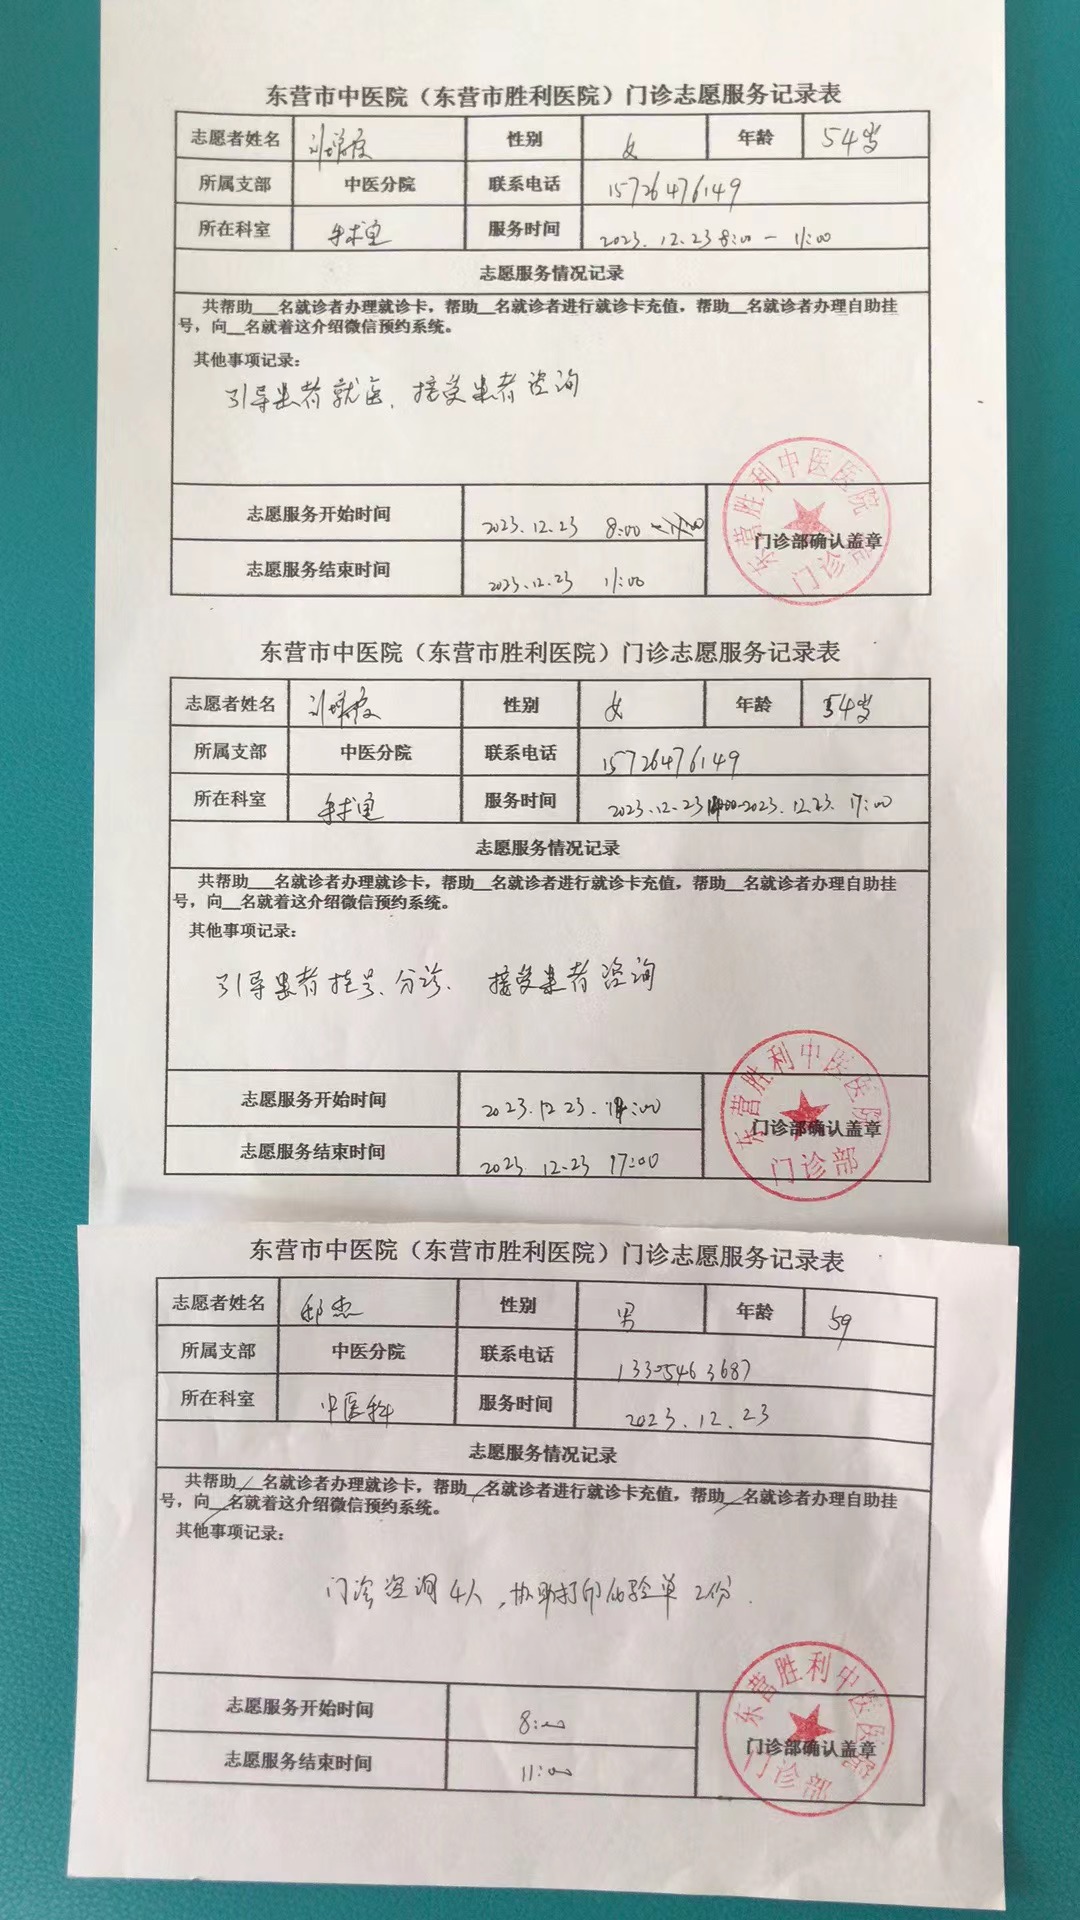 东营市中医院（东营市胜利医院）门诊志愿服务记录表
志愿者姓名 刘 性别 女 年龄 54岁
所属支部 中医分院 联系电话 15726476149
所在科室 手术室 服务时间 2023.12.23 8:00-11:00
志愿服务情况记录
共帮助___名就诊者办理就诊卡，帮助__名就诊者进行就诊卡充值，帮助__名就诊者办理自助挂
号，向__名就着这介绍微信预约系统。
其他事项记录：
引导患者就医、接受患者咨询
志愿服务开始时间 2023.12.23 8:00
志愿服务结束时间 2023.12.23 11:00
门诊部确认盖章
东营胜利中医医院
门诊部
东营市中医院（东营市胜利医院）门诊志愿服务记录表
志愿者姓名 刘 性别 女 年龄 54岁
所属支部 中医分院 联系电话 15726476149
所在科室 手术室 服务时间 2023.12.23 14:00-2023.12.23. 17:00
志愿服务情况记录
共帮助___名就诊者办理就诊卡，帮助__名就诊者进行就诊卡充值，帮助__名就诊者办理自助挂
号，向__名就着这介绍微信预约系统。
其他事项记录：
引导患者挂号、分诊、接受患者咨询
志愿服务开始时间 2023.12.23. 14:00
志愿服务结束时间 2023.12.23 17:00
门诊部确认盖章
东营胜利中医医院
门诊部
东营市中医院（东营市胜利医院）门诊志愿服务记录表
志愿者姓名 邱杰 性别 男 年龄 59
所属支部 中医分院 联系电话 13305463687
所在科室 中医科 服务时间 2023.12.23
志愿服务情况记录
共帮助/名就诊者办理就诊卡，帮助/名就诊者进行就诊卡充值，帮助/名就诊者办理自助挂
号，向/名就着这介绍微信预约系统。
其他事项记录：
门诊咨询4人，协助打印化验单2份.
志愿服务开始时间 8:00
志愿服务结束时间 11:00
门诊部确认盖章
东营胜利中医医院
门诊部